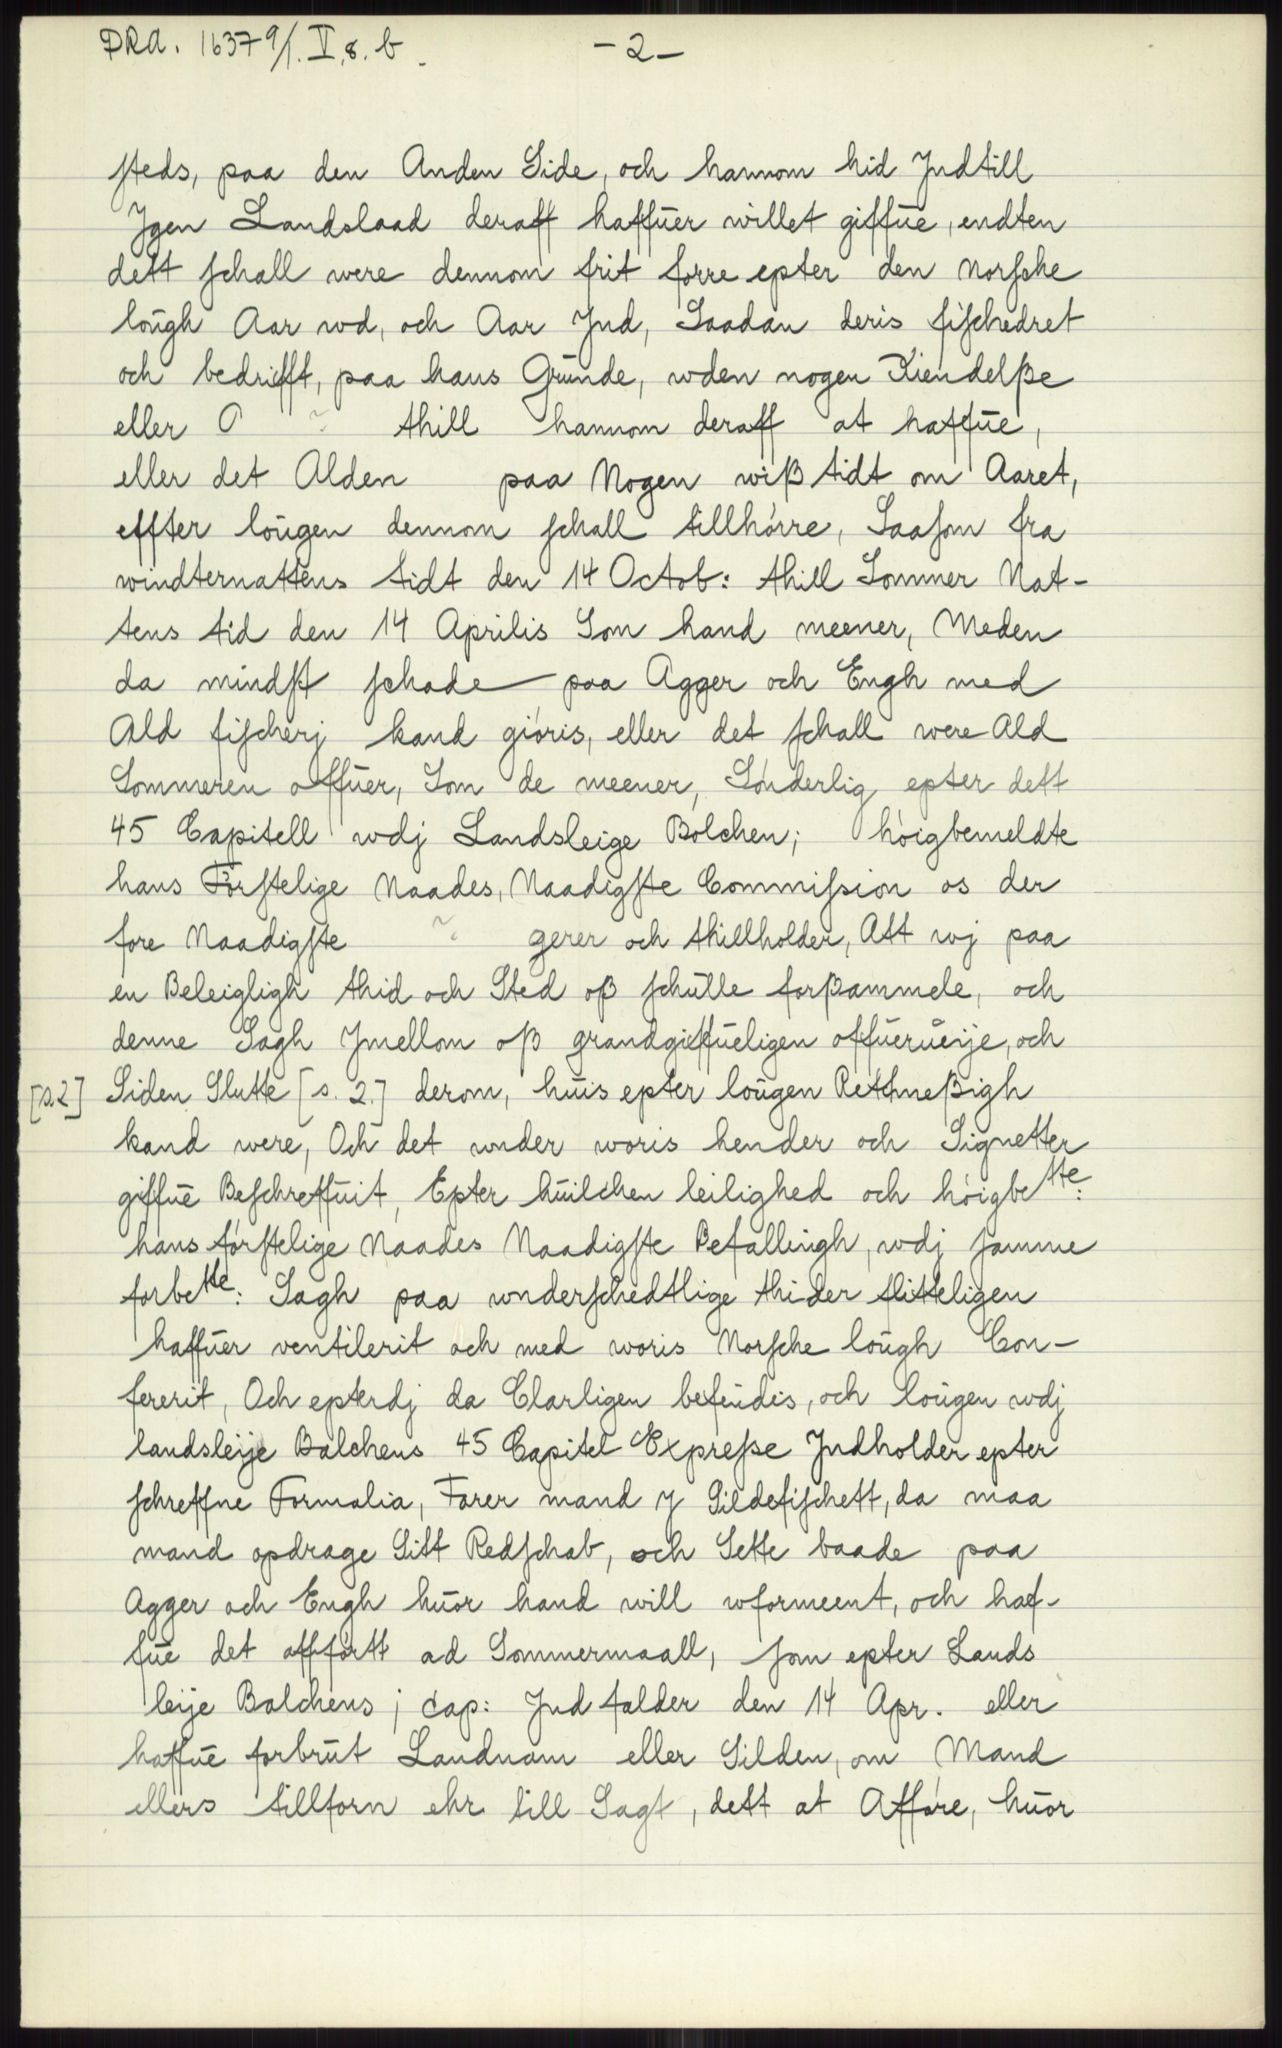 DRA. 1637 9/1. V, 8. b.
-2-
steds, paa den Anden Side, och hannom hid Jndtill
Jgen Landslaad deraff haffuer willet giffue, endten
dett schall were dennom frit forre epter den Norsche
lough Aar wd, och Aar Jnd, Saadan deris fischedret
och bedrifft, paa hans Grunde, wden nogen Kiendelße
eller O ~ thill hannom deraff at haffue,
eller det Alden paa Nogen wiß tidt om Aaret,
effter lougen dennom schall tillhörre, Saasom fra
windternattens tidt den 14 Octob: thill Sommer Nat-
tens tid den 14 Aprilis Som hand meener, Meden
da mindst schade paa Agger och Engh med
Ald fischerj kand giöris, eller det schall were Ald
Sommeren offuer, Som de meener, Sönderlig epter dett
45 Capitell wdj Landsleige Bolchen; höigbemeldte
hans Förstelige Naades, Naadigste Commission os der
fore Naadigste ~? gerer och thillholder, Att wj paa
en Beleigligh thid och Sted oß schulle forßammele, och
denne Sagh Jmellom oß grandgiffueligen offuerueije, och
[s.2] Siden Slutte [s. 2.] derom, huis epter lougen Retthmeßigh
kand were, Och det wnder woris hender och Signetter
giffue Beschreffuit, Epter huilchen leilighed och höigbetle:
hans förstelige Naades Naadigste Befallingh, wdj samme
forbetle: Sagh paa wnderschedtlige thider flitteligen
haffuer ventilerit och med woris Norsche lough Con-
fererit, Och epterdj da Clarligen befindis, och lougen wdj
landsleije Balchens 45 Capitel Expresse Jndholder epter
schreffne Formalia, Farer mand y Sildefischett, da maa
mand opdrage Sitt Redschab, och Sette baade paa
Agger och Engh huor hand will wformeent, och haf-
fue det affört ad Sommermaall, som epter Lands
leije Balchens j cap: Jndfalder den 14 Apr. eller
haffue forbrut Landnam eller Silden, om Mand
ellers tillforn ehr till Sagt, dett at Afföre, huor